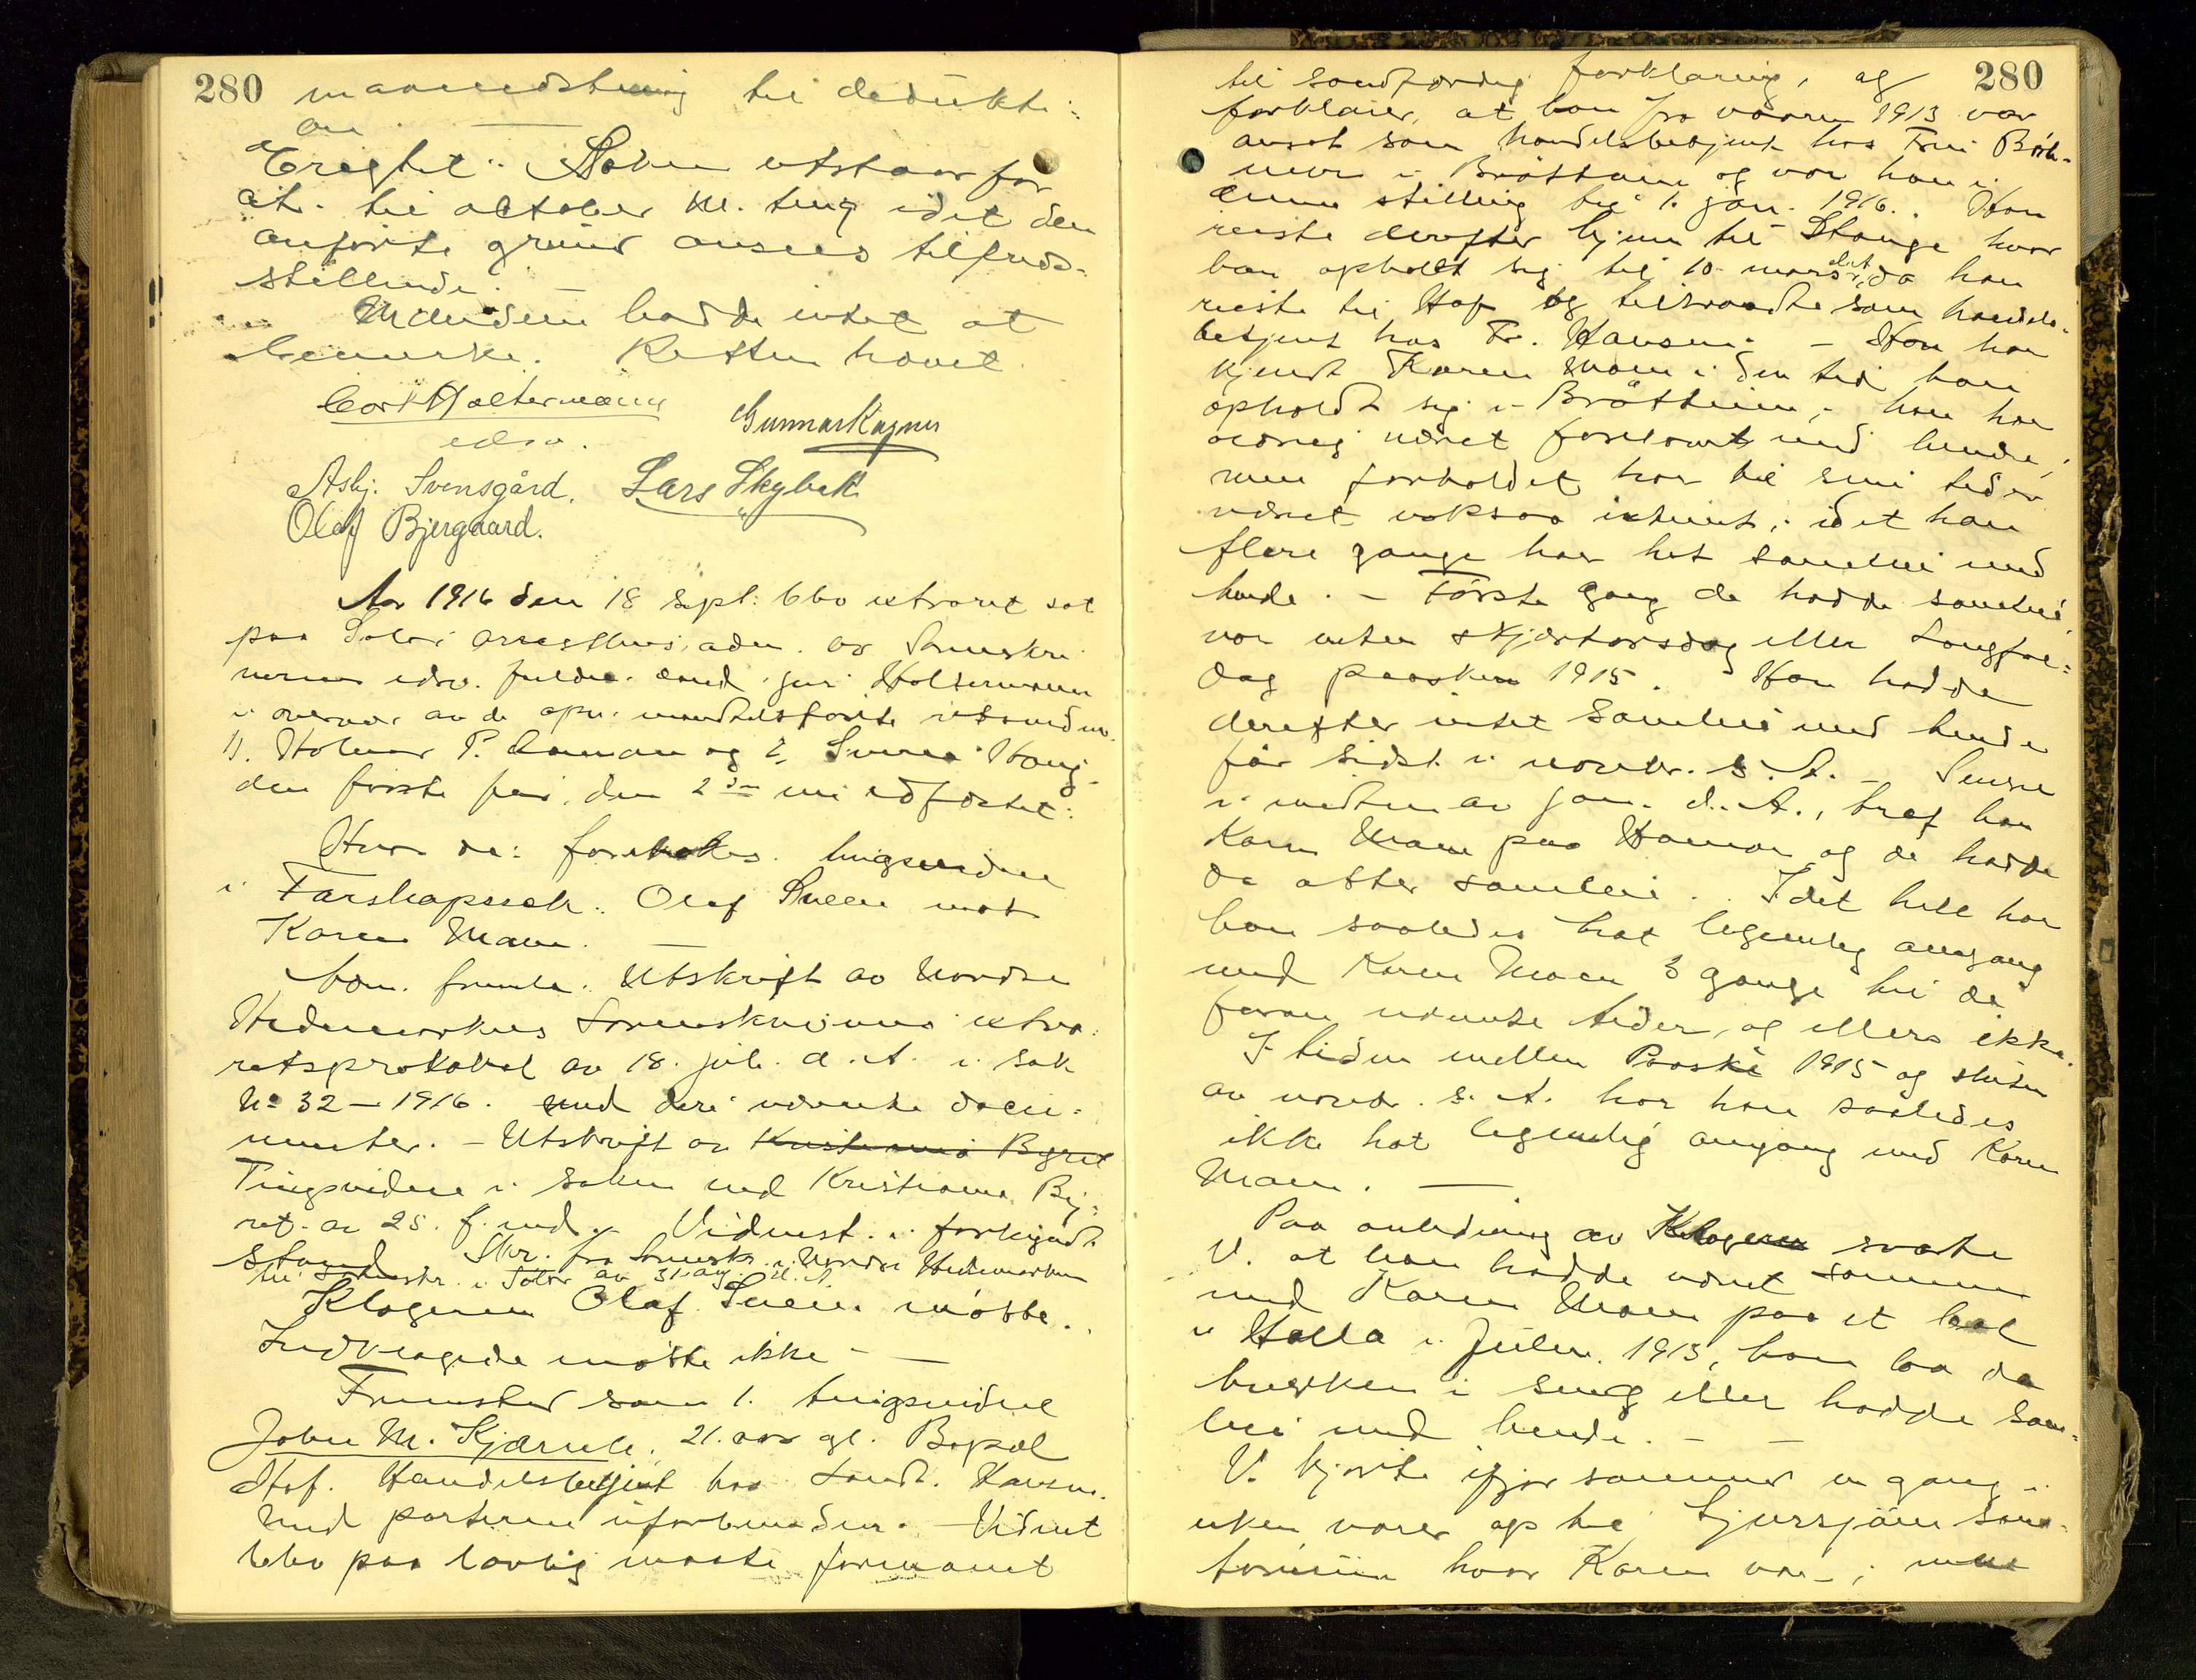 280
maanedstening til dedukti:
on.
Eragtet: Saken utstaar for
ait. til october m. ting idet den
anförte grund ansees tilfreds-
stillende. —
Mændene hadde intet at
bemerke. Retten hævet.
Carl Holtermann
edsv.
Gunnar Ragnes
Asbj. Svensgård. Lars Skybak
Olaf Bjergaard.
Aar 1916 den 18 sept: blev extraret sat
paa Solør arresthus, adm. av Sorenskri
verens edsv. fuldm. cand. jur. Holtermann
i overvær av de opn. retsvidner
1). Holmer P. og 2, Haug.
den förste for, den 2den nu edfæstet:
Hvor da: foretokes tingsvidne
i Farskapssak: Olaf Sveen mot
Karen Moen. —
Adm. fremla. Utskrift av Nordre
Hedemarkens Sorenskriveris extra
retsprotokol av 18. juli d. A. i sak
No 32 – 1916. med deri nævnte docu-
menter. – Utskrift av Kristiania Byret
Tingsvidne i saken ved Kristiania By-
ret av 25. f. md. Vidnest. i forkyndt
stand Skr. fra Sorenskr. i Nordre Hedemarken
til Sorenskr. i Solør av 31. aug. d. A.
Klageren Olaf Sveen mötte.
Indklagede mötte ikke —
Fremstod som 1. tingsvidne
John M. Kjærneli, 21. aar gl. Bopæl
Hof. Handelsbetjent hos Landh. Hansen.
Med parterne uforbunden. – Vidnet
blev paa lovlig maate formanet
280
til sandfærdig forklaring, og
forklarer, at han fra vaaren 1913 var
ansat som handelsbetjent hos Fru Böh-
mer i Bröttum og var han i
denne stilling til 1. jan. 1916. Han
reiste derefter hjem til Stange hvor
han opholdt sig til 10 mars d.A., da han
reiste til Hof og tiltraadte som handels-
betjent hos Fr. Hansen. – Han har
kjendt Karen Moen i den tid han
opholdt sig i Bröttum; han har
aldrig været forlovet med hende,
men forholdet har til sine tider
været noksaa intimt, idet han
flere gange har hat samleie med
hende. – Förste gang de hadde samleie,
var enten skjærtorsdag eller Langfre-
dag paasken 1915. Han hadde
derefter intet samleie med hende
før sidst i novbr. s. A. – Senere
i midten av jan. d. A., traf han
Karen Moen paa Hamar og de hadde
da atter samleie. I det hele har
han saaledes hat legemlig omgang
med Karen Moen 3 gange til de
foran nævnte tider, og ellers ikke.
I tiden mellem Paaske 1915 og slutten
av novbr. s. A. har han saaledes
ikke hat legemlig omgang med Karen
Moen. —
Paa anledning av Klageren svarte
V. at han hadde været sammen
med Karen Moen paa et bal
i Halla i Julen 1913, han laa da
hverken i seng eller hadde sam-
leie med hende. — —
V. kjörte ifjor sommer en gang i
uken varer op til Sjursjöen Sana-
torium hvor Karen var; men